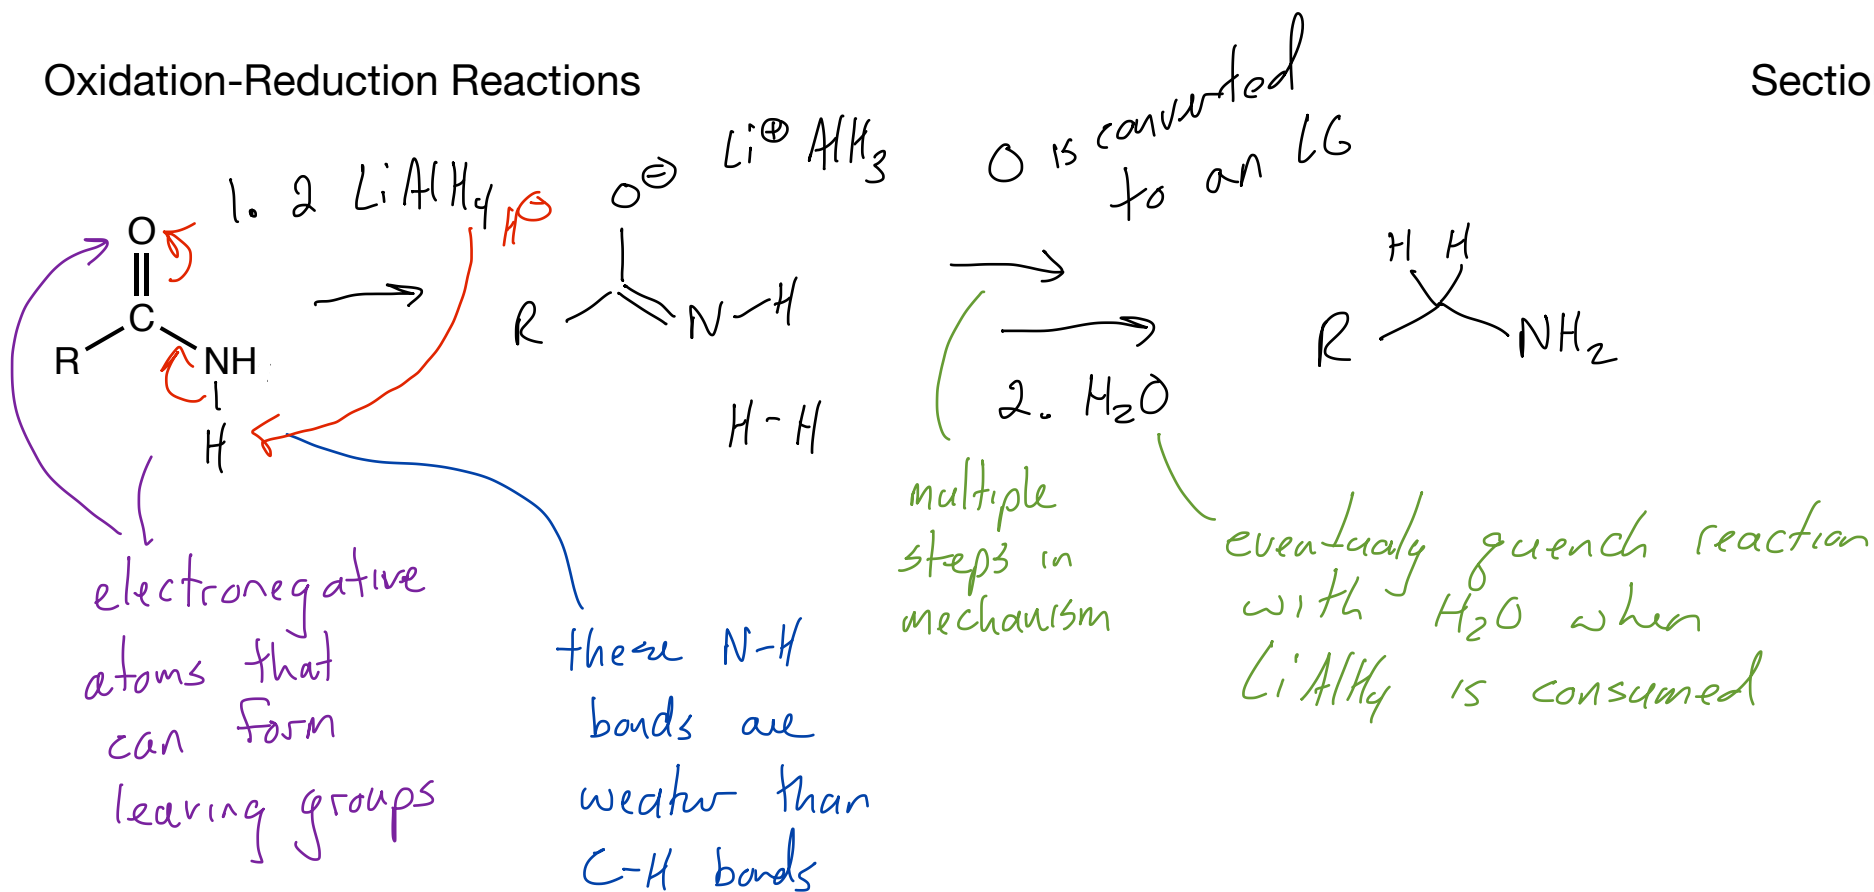 Oxidation-Reduction Reactions
Sectio
1. 2 LiAlH4
H⊖
O
C
R
NH
H
O⊖
Li⊕ AlH3
R
N-H
H-H
O is converted
to an LG
2. H2O
H H
R
NH2
electronegative
atoms that
can form
leaving groups
these N-H
bonds are
weaker than
C-H bonds
multiple
steps in
mechanism
eventualy quench reaction
with H2O when
LiAlH4 is consumed